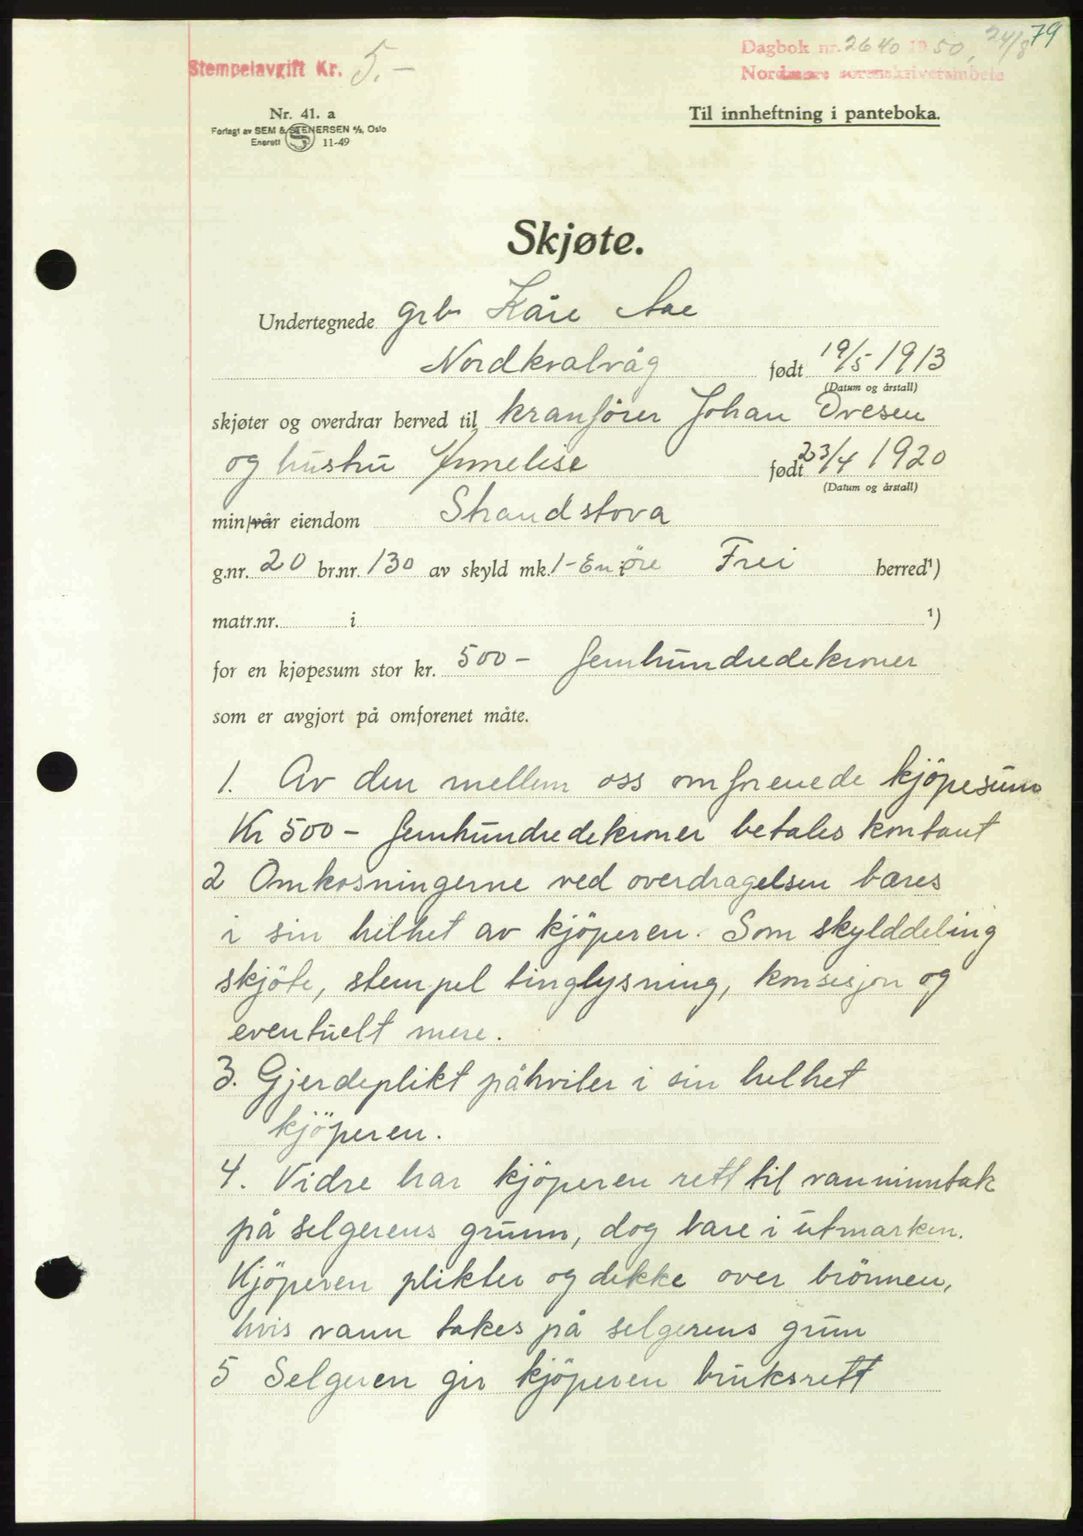 79
Dagbok nr. 2640 1950, 24/8
Nordmøre sorenskriverembete
Stempelavgift Kr. 5.-
Nr. 41. a
Forlagt av SEM & STENERSEN A/S, Oslo
Enerett 11-49
Til innheftning i panteboka.
Skjøte.
Undertegnede grb Kåre Aae
Nordkvalvåg født 19/5 1913
(Datum og årstall)
skjøter og overdrar herved til kranfører Johan Ovesen
og hustru Annelise født 23/4 1920
(Datum og årstall)
min/vår eiendom Strandstova
g.nr. 20 br.nr. 130 av skyld mk. 1- En øre i Frei herred¹)
matr.nr. i ¹)
for en kjøpesum stor kr. 500- femhundredekroner
som er avgjort på omforenet måte.
1. Av den mellem oss omforenede kjöpesum
Kr 500- femhundredekroner betales kontant
2 Omkosningerne ved overdragelsen bæres
i sin helhet av kjöperen. Som skylddeling
skjöte, stempel tinglysning, konsesjon og
eventuelt mere.
3. Gjerdeplikt påhviler i sin helhet
kjöperen.
4. Vidre har kjöperen rett til vanninntak
på selgerens grunn, dog bare i utmarken.
Kjöperen plikter og dekke over brönnen,
hvis vann takes på selgerens grun
5 Selgeren gir kjöperen bruksrett